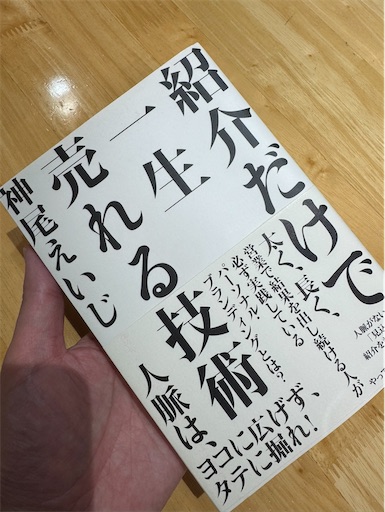 紹介だけで
一生
売れる技術
神尾えいじ
太く、長く、
営業で結果を出し続ける人が
必ず実践している
パーソナル
ブランディングとは?
人脈は、
ヨコに広げず、
タテに掘れ!
人脈がない
紹介を